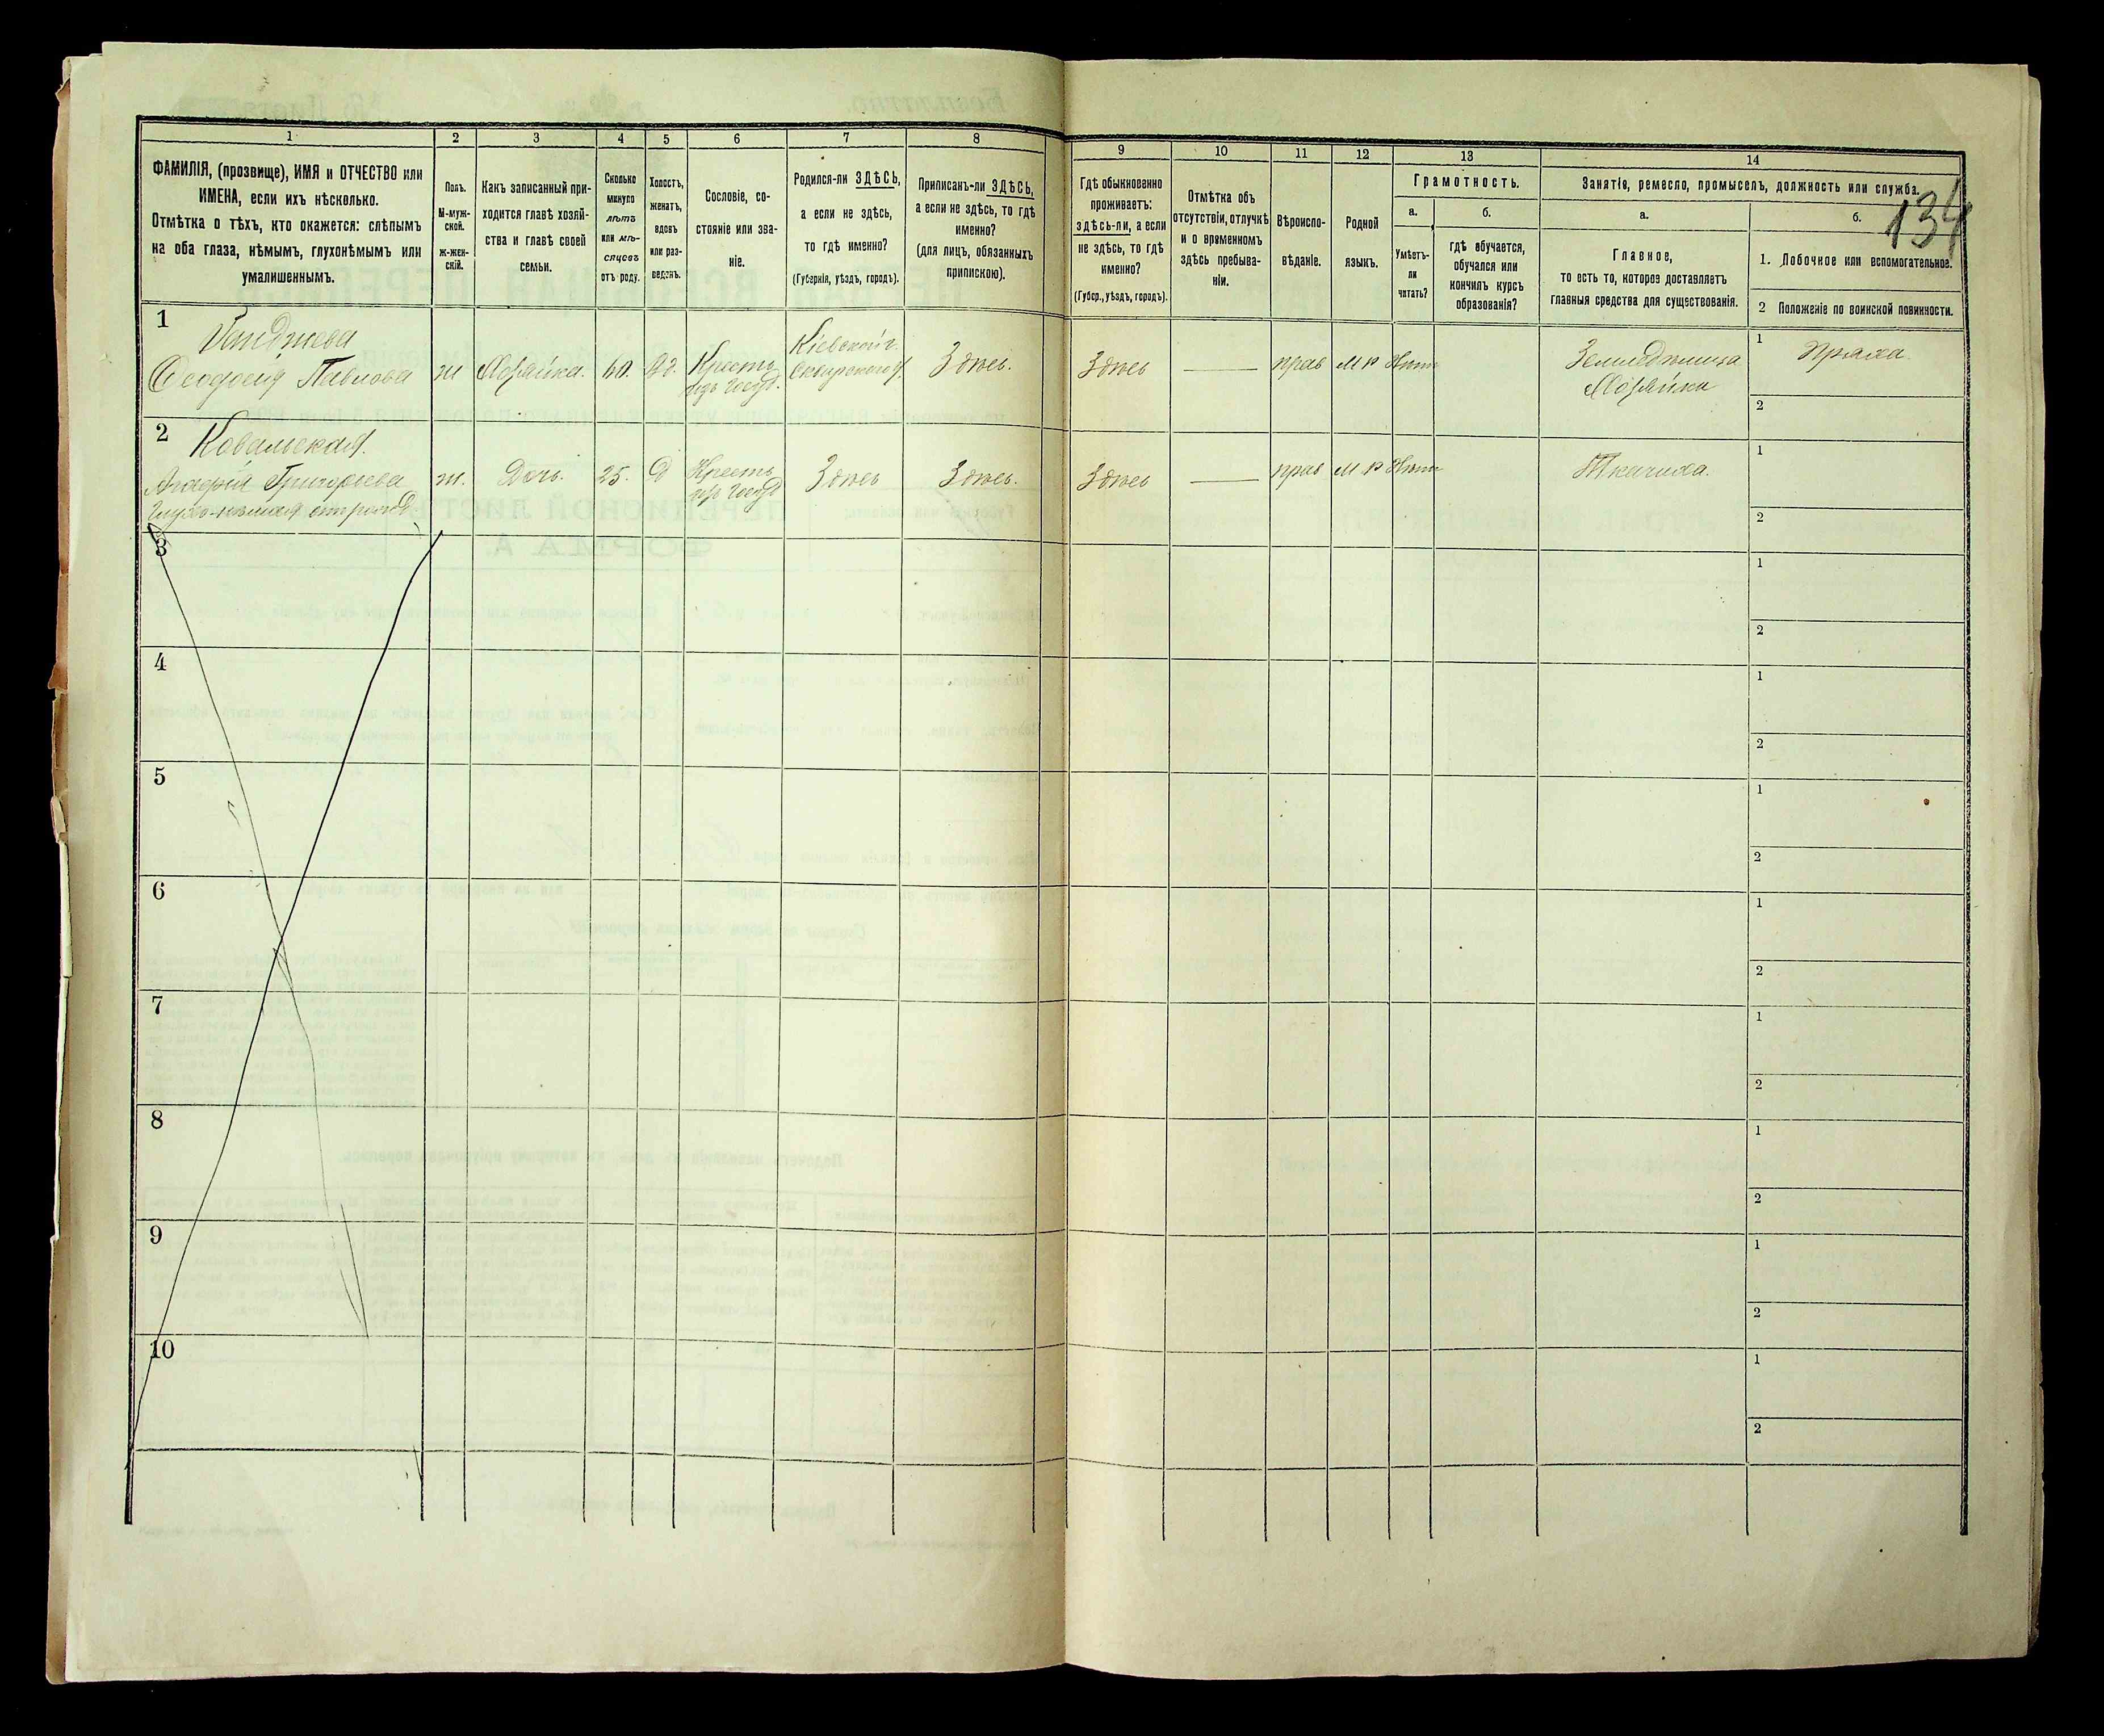 134
1
2
3
4
5
6
7
8
ФАМИЛІЯ, (прозвище), ИМЯ и ОТЧЕСТВО или
ИМЕНА, если ихъ нѣсколько.
Отмѣтка о тѣхъ, кто окажется: слѣпымъ
на оба глаза, нѣмымъ, глухонѣмымъ или
умалишеннымъ.
Полъ.
М-муж-
ской.
ж-жен-
скій.
Какъ записанный при-
ходится главѣ хозяй-
ства и главѣ своей
семьи.
Сколько
минуло
лѣтъ
или мѣ-
сяцевъ
отъ роду.
Холостъ,
женатъ,
вдовъ
или раз-
веденъ.
Сословіе, со-
стояніе или зва-
ніе.
Родился-ли ЗДѢСЬ,
а если не здѣсь,
то гдѣ именно?
(Губернія, уѣздъ, городъ).
Приписанъ-ли ЗДѢСЬ,
а если не здѣсь, то гдѣ
именно?
(для лицъ, обязанныхъ
припискою).
9
10
11
12
13
14
Гдѣ обыкновенно
проживаетъ:
здѣсь-ли, а если
не здѣсь, то гдѣ
именно?
(Губер., уѣздъ, городъ).
Отмѣтка объ
отсутствіи, отлучкѣ
и о временномъ
здѣсь пребыва-
ніи.
Вѣроиспо-
вѣданіе.
Родной
языкъ.
Грамотность.
а.
б.
Умѣетъ-
ли
читать?
гдѣ обучается,
обучался или
кончилъ курсъ
образованія?
Занятіе, ремесло, промыселъ, должность или служба.
а.
б.
Главное,
то есть то, которое доставляетъ
главныя средства для существованія.
1. Побочное или вспомогательное.
2 Положеніе по воинской повинности.
1
Феодосія Павлова
ж
Хозяйка.
60.
Вд.
Крест.
изъ Госуд.
Кіевской г.
Сквирского у.
Здѣсь.
Здѣсь
—
прав
М р
Нѣтъ
Хозяйка
1 Пряха.
2
2
Ковальская.
Григорьева
Глухо-нѣмая
ж.
Дочь.
25.
Д
Крест.
изъ Госуд
Здѣсь
Здѣсь.
Здѣсь
—
прав
М р
Нѣтъ
Ткачиха.
1
2
3
1
2
4
1
2
5
1
2
6
1
2
7
1
2
8
1
2
9
1
2
10
1
2